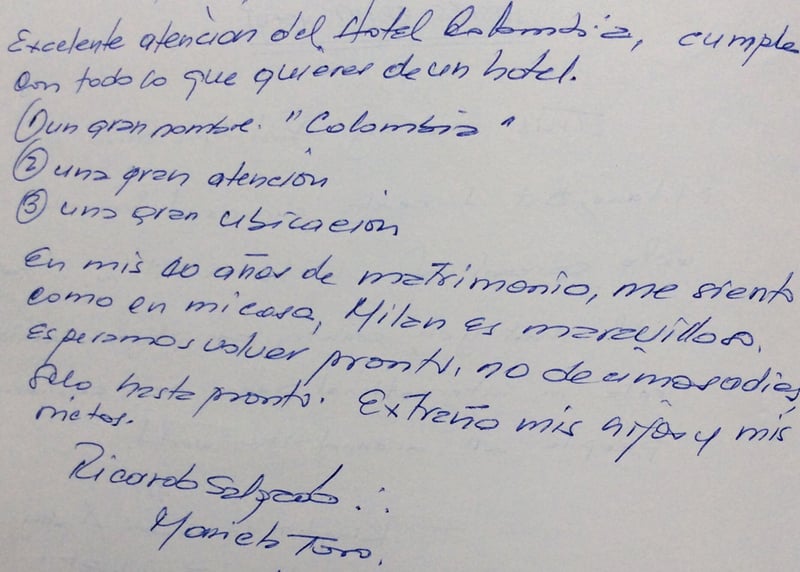 Excelente atención del Hotel Colombia, cumple
con todo lo que quieres de un hotel.
① un gran nombre. "Colombia"
② una gran atención
③ una gran ubicación
En mis 40 años de matrimonio, me siento
como en mi casa, Milan es maravilloso.
esperamos volver pronto, no decimos adios,
solo hasta pronto. Extraño mis hijos y mis
nietos.
Ricardo Salgado ∴
Toro.